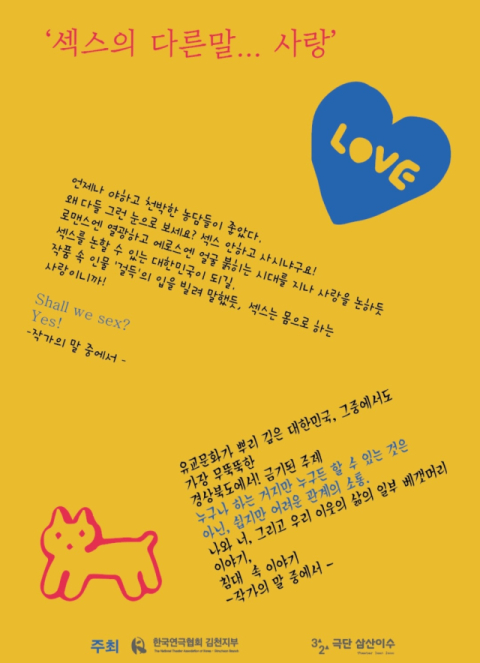 ‘섹스의 다른말... 사랑’
LOVE
언제나 야하고 천박한 농담들이 좋았다.
왜 다들 그런 눈으로 보세요? 섹스 안하고 사시냐구요!
로맨스엔 열광하고 에로스엔 얼굴 붉히는 시대를 지나 사랑을 논하듯
섹스를 논할 수 있는 대한민국이 되길.
작품 속 인물 '걸득'의 입을 빌려 말했듯, 섹스는 몸으로 하는
사랑이니까!
Shall we sex?
Yes!
-작가의 말 중에서 -
유교문화가 뿌리 깊은 대한민국, 그중에서도
가장 무뚝뚝한
경상북도에서! 금기된 주제
누구나 하는 거지만 누구든 할 수 있는 것은
아닌, 쉽지만 어려운 관계의 소통.
나와 너, 그리고 우리 이웃의 삶의 일부 베갯머리
이야기,
침대 속 이야기
-작가의 말 중에서 -
주최 한국연극협회 김천지부 극단 삼산이수